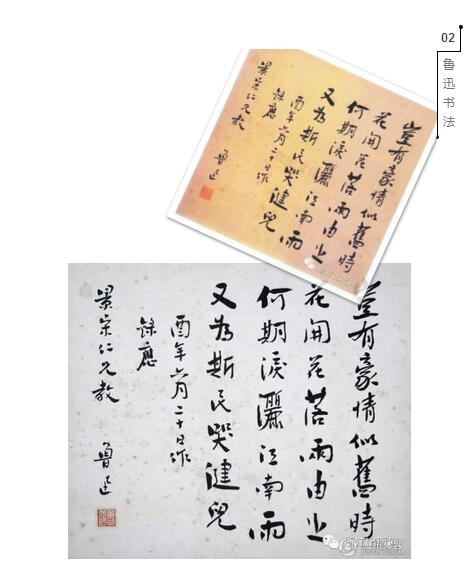 02
鲁迅书法
豈有豪情似舊時
花開花落兩由之
何期淚灑江南雨
又為斯民哭健兒
酉年六月二十日作
錄應
景宋仁兄教
魯迅
豈有豪情似舊時
花開花落兩由之
何期淚灑江南雨
又為斯民哭健兒
酉年六月二十日作
錄應
景宋仁兄教
魯迅